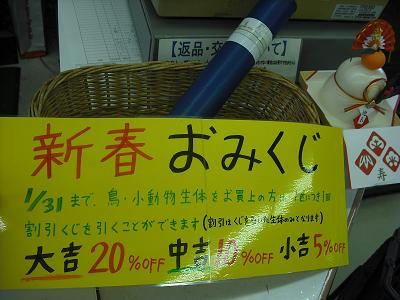 【返品・交換について】
新春おみくじ
1/31まで、鳥・小動物生体をお買上の方は、生体につき1回
割引くじを引くことができます(割引はくじを引いた生体のみとなります)
大吉20%OFF 中吉10%OFF 小吉5%OFF
寿